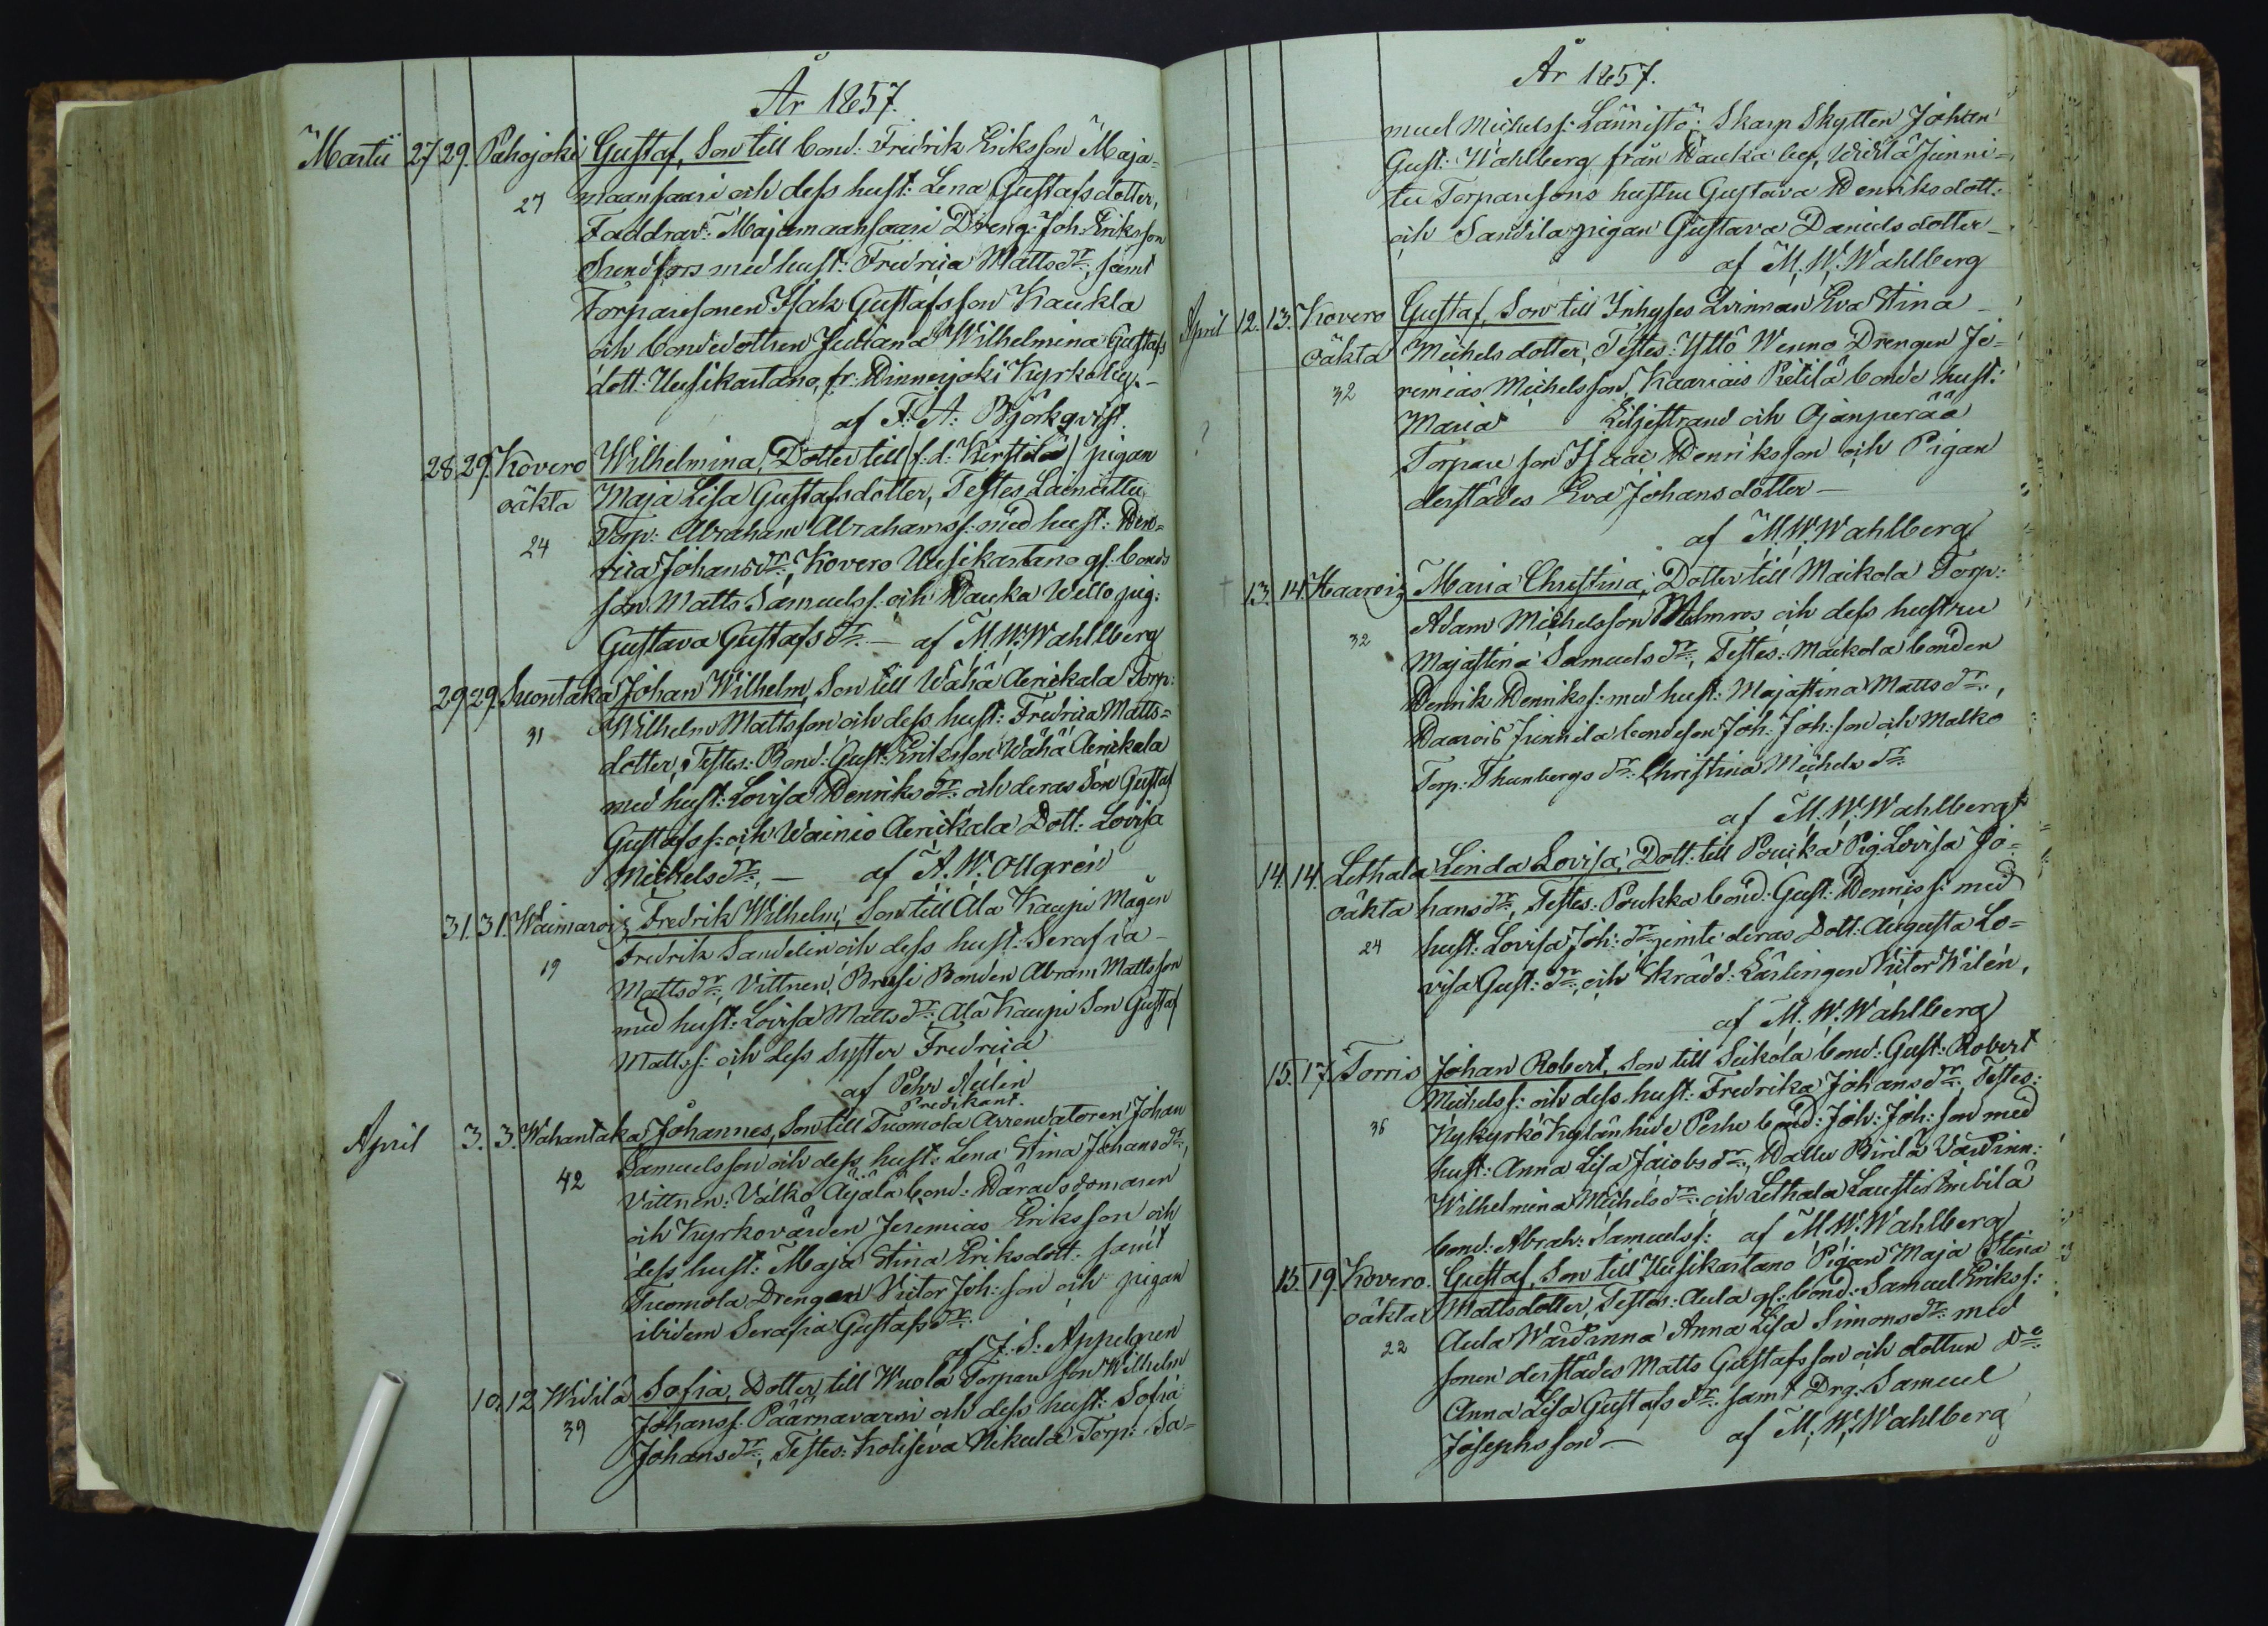 År 1857.
Martii 27 29. Pahojoki Gustaf, Son till bond: Fredrik Eriksson Maja-
27 maansaari och dess hust: Lena Gustafsdotter,
Faddrar: Majamaansaari Dreng: Joh: Eriksson
Sundfors med hust: Fredrica Matts dr: samt
Torparesonen Isak Gustafsson Kaukla
och bondedottren Juliana Wilhelmina Gustafs
dott: Uusikartano, fr: Hinnerjoki Kyrkoby. –
af F: A: Björkqvist.
28. 29. Kovero Wilhelmina, Dotter till (f: d: Kirstilä) pigan
oäkta Maja Lisa Gustafsdotter, Testes
24 Torp: Abraham Abrahamss: med hust: Hen-
rica Johans dr:, Kovero Uusikartano gl: bonds
son Matts Samuelss: och Hauka Wello pig:
Gustava Gustafs dr: – af M. W. Wahlberg
29 29. Suontaka Johan Wilhelm, Son till Wähä Aerikala Torp:
31 Wilhelm Mattsson och dess hust: Fredrica Matts-
dotter, Testes: Bond: Gust: Eriksson Wähä Aerikala
med hust: Lovisa Henriks dr: och deras Son Gustaf
Gustafs s: och Wainio Aerikala Dott: Lovisa
Michels dr:, – af A. W. Ollgrén
31. 31. Waimaro Fredrik Wilhelm, Son till Ala Kaupi Mågen
19 Fredrik Sandelin och dess hust: Serafia
Matts dr:, Vittnen, Brusi Bonden Abram Mattsson
med hust: Lovisa Matts dr: Ala Kaupi Son Gustaf
Mattss: och dess Syster Fredrica
af Pehr Aulin
Predikant.
April 3. 3. Wahantaka Johannes, Son till Tuomola Arrendatoren Johan
42 Samuelsson och dess hust: Lena Stina Johans dr:,
Vittnen: Valko Äijälä bond: Häradsdomaren
och Kyrkovärden Jeremias Eriksson och
dess hust: Maja Stina Eriksdott: samt
Tuomola Drengen Victor Joh: son och pigan
ibidem Serafia Gustafs dr:
af J. S. Appelgren
10. 12. Widilä Sofia, Dotter till Wuola Torpare son Wilhelm
39 Johanss: Päärnävarsi och dess hust: Sofia
Johans dr:, Testes: Koliseva Nikula Torp: Sa-
År 1857.
muel Michelss: Lännistö; Skarp Skytten Johan
Gust: Wahlberg från Hauka by, Widilä Junni-
tu Torparesons hustru Gustava Henriksdott:
och Sandila pigan Gustava Danielsdotter –
af M. W. Wahlberg
April 12. 13. Kovero Gustaf, Son till Inhyses Qvinnan Eva Stina
oäkta Michelsdotter, Testes: Yttö Wenno Drengen Je-
32 remias Michelsson, Kaariais Pietilä bonde hust:
? Maria Liljestrand och Ojanperää
Torpare son Isaac Henriksson och Pigan
derstädes Eva Johansdotter –
af M. W. Wahlberg
+ 13. 14. Haarois Maria Christina, Dotter till Maikola Torp:
32 Adam Michelsson Malmros och dess hustru
Majastina Samuels dr:, Testes: Maikola bonden
Henrik Henrikss: med hust: Majastina Matts dr:,
Haarois Junnila bondeson Joh: Joh: son och Malko
Torp: Thunbergs dr: Christina Michels dr:
af M. W. Wahlberg
14. 14. Lethala Linda Lovisa, Dott: till Poukka Pig: Lovisa Jo-
oäkta hans dr:, Testes: Poukka bond: Gust: Henriss: med
24 hust: Lovisa Joh: dr: jemte deras Dott: Augusta Lo-
visa Gust: dr:, och Skrädd: Lärlingen Victor Wilén,
af M. W. Wahlberg
15. 17. Torris Johan Robert, Son till Seikola bond: Gust: Robert
36 Michelss: och dess hust: Fredrika Johans dr:, Testes:
Nykyrkö Kylänhide Peshu bond: Joh: Joh: son med
hust: Anna Lisa Jacobs dr:, Hallu Birilä Värdinn:
Wilhelmina Michels dr: och Lethala Laustis
bond: Abrah: Samuelss: af M. W. Wahlberg
15. 19. Kovero. Gustaf, Son till Uusikartano Pigan Maja Stina
oäkta Mattsdotter, Testes: Aula gl: bond: Samuel Erikss:
22 Aula Wärdinna Anna Lisa Simons dr: med
sonen derstädes Matts Gustafsson och dottren
Anna Lisa Gustafs dr: samt Drg: Samuel
Josephsson – af M. W. Wahlberg